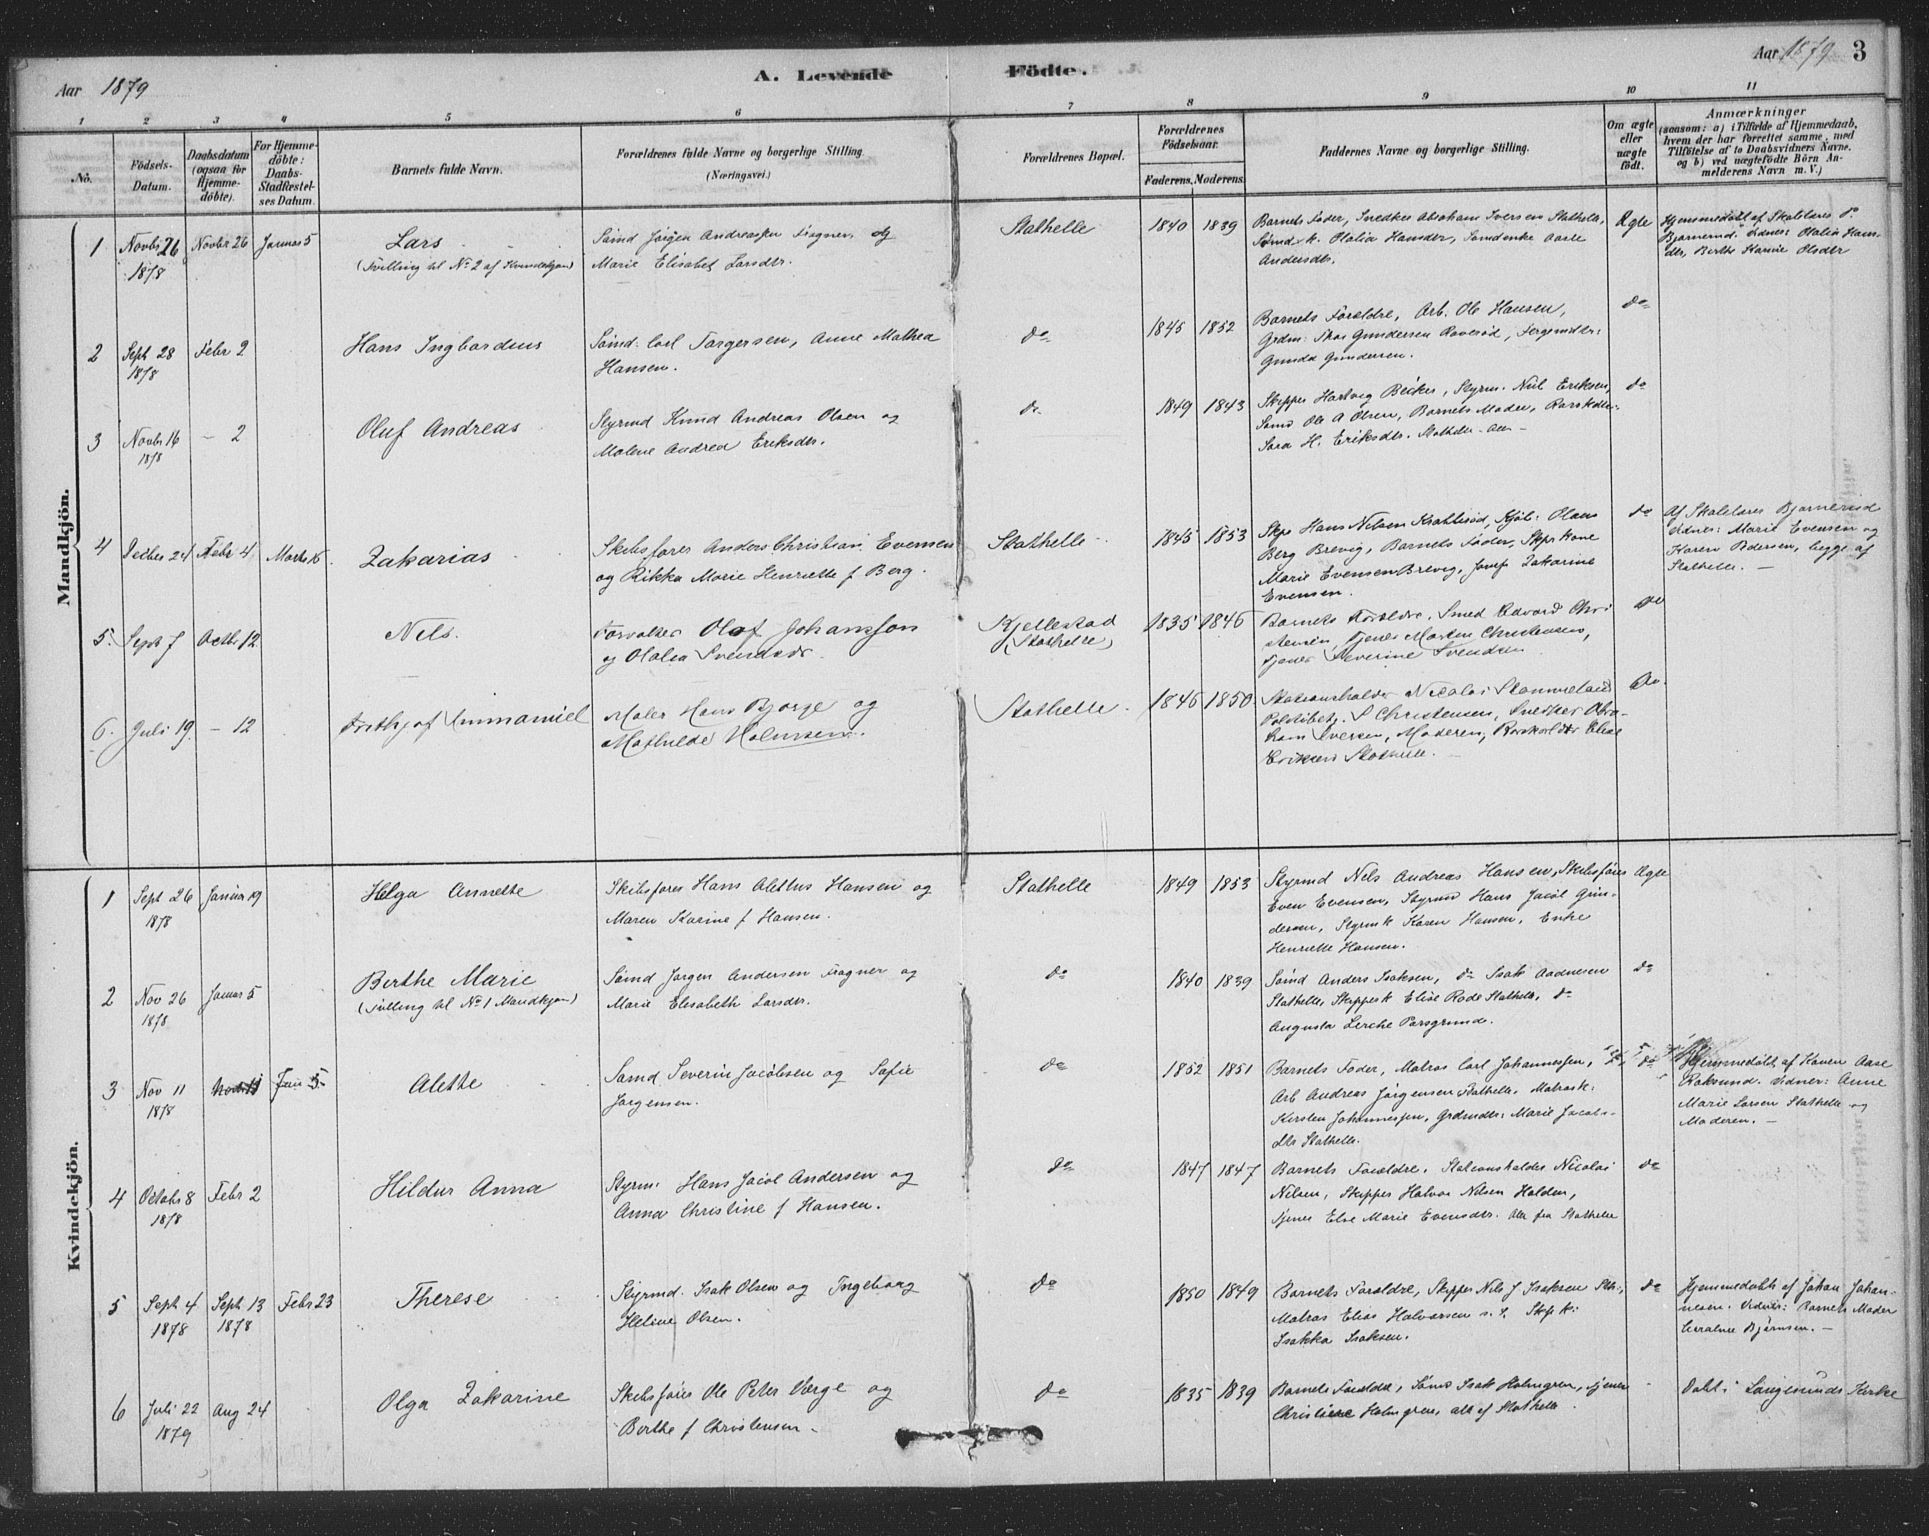 Aar 1879
A. Levende Födte.
Aar 1879 3
1 2 3 4 5 6 7 8 9 10 11
No.
Födsels-
Datum.
Daabsdatum
(ogsaa for
Hjemme-
döbte).
For Hjemme-
döbte:
Daabs-
Stadfæstel-
ses Datum.
Barnets fulde Navn.
Forældrenes fulde Navne og borgerlige Stilling.
(Næringsvei.)
Forældrenes Bopæl.
Forældrenes
Födselsaar.
Faderens. Moderens.
Faddernes Navne og borgerlige Stilling.
Om ægte
eller
uægte
födt.
Anmærkninger
(saasom: a) i Tilfælde af Hjemmedaab,
hvem der har forrettet samme, med
Tilföielse af to Daabsvidners Navne,
og b) ved uægtefödte Börn An-
melderens Navn m. V.)
Mandkjön.
1 Novbr 26 Novbr 26 Januar 5
1878
Lars
(Tvilling til No 2 af Kvindekjøn)
Sømd Jørgen Andreassen Fragner og
Marie Elisabet Larsdtr.
Stathelle 1840 1839
Barnets Fader, Snedker Abraham Iversen Stathelle,
Sømd k. Olalia Hansdtr, Sømdenke Aase
Andersdtr.
Ægte
Hjemmedøbt af Skolelærer
Bjørnerud. Vidner: Olalia Hans-
dtr, Berthe Karine Olsdtr
2 Sept 28 Febr 2
1878
Hans Ingbardus
Sømd. Carl Torgersen, Anne Mathea
Hansen.
do 1845 1852
Barnets Forældre, Arb. Ole Hansen,
Grdm: Thor Gundersen Roverød,
Gunda Gundersen.
do
3 Novbr 16 - 2
1878
Oluf Andreas
Styrmd Knud Andreas Olsen og
Malene Andrea Eriksdtr.
do 1849 1843
Skipper Hartvig Becker, Styrm. Niel Eriksen,
Sømd Ole A Olsen, Barnets Moder,
Sara H. Eriksdtr. Stathelle
do
4 Decbr 24 Febr 4 Marts 16
Zakarias
Skibsfører Anders Christian Evensen
og Rikka Marie Henriette f Berg.
Stathelle 1845 1853
Skp Hans Nilsen Krabberød, Kjøb: Olaus
Berg Brevig, Barnets Fader, Skpr kone
Marie Evensen Brevig, Zakarine
Evensen.
do
Af Skolelærer Bjørnerud
Vidner: Marie Evensen og
Karen Pedersen, begge af
Stathelle. -
5. Sept 7 Octbr 12
Nils.
Forvalter Olof Johansson
og Olalia Svendsdr.
Kjellestad
(Stathelle)
1835 1846
Barnets Forældre, Smed Edvard Chri-
stensen, Tjener Morten Christensen,
Tjener Severine Svendsen
do
6. Juli 19 - 12
Frithjof Immanuel
Maler Hans Bjørge og
Mathilde Holmsen.
Stathelle. 1846 1850
Stationsholder Nicolai Stammeland
Politibetj. S Christensen, Snedker Abra-
ham Iversen, Moderen, Elise
Eriksen Stathelle. -
do.
Kvindekjön.
1 Sept 26 Januar 19
1878
Helga Annette
Skibsfører Hans Alettus Hansen og
Maren Karine f Hansen.
Stathelle 1849 1853
Styrmd Nels Andreas Hansen, Skibsfører
Even Evensen, Styrmd Hans Jacob Gun-
dersen, Styrm k Karen Hansen, Enke
Henriette Hansen.
Ægte
2 Nov 26 Januar 5
1878
Berthe Marie
(Tvilling til No 1 Mandkjøn)
Sømd Jørgen Andersen Fragner og
Marie Elisabeth Larsdtr.
do 1840 1839
Sømd Anders Isaksen, do Isak Aadnesen
Stathelle, Skippersk Elise Rode Stathelle, do
Augusta Lerche Porsgrund.
do
3 Nov 11 Novbr 11 Jan 5
1878
Alette
Sømd Severin Jacobsen og Sofie
Jørgensen.
do 1852 1851
Barnets Fader, Matros Carl Johannessen,
Arb Andreas Jørgensen Stathelle, Matrosk:
Kirsten Johannessen, Grdmdtr: Marie Jacobs-
dtr Stathelle.
do
Hjemmedøbt af Konen Aase
Roksund. Vidner: Anne
Marie Larsen Stathelle og
Moderen. -
4 Octobr 8 Febr 2
1878
Hildur Anna
Styrm: Hans Jacob Andersen og
Anna Christine f Hansen.
do 1847 1847
Barnets Forældre, Stationsholder Nicolai
Nilsen, Skipper Halvor Nilsen Halden,
Tjener Else Marie Evensdtr. Alle fra Stathelle
do
5 Sept 4 Sept 13 Febr 23
1878 1878
Therese
Styrmd. Isak Olsen og Ingeborg
Heline Olsen.
do 1850 1849
Barnets Forældre, Skipper Nils J Isaksen Sth.,
Matros Elias Halvorsen s. s. Skp k:
Isakka Isaksen.
do
Hjemmedøbt af Johan Johan-
nesen. Vidner: Barnets Moder
Bjørnsen. -
6 Juli 22 Aug 24
1879
Olga Zakarine
Skibsfører Ole Peter Værge og
Berthe f Christensen -
do 1835 1839
Barnets Forældre, Sømd Isak Holmgren, Tjener
Christiane Holmgren, alle af Stathelle.
Døbt i Langesunds Kirke